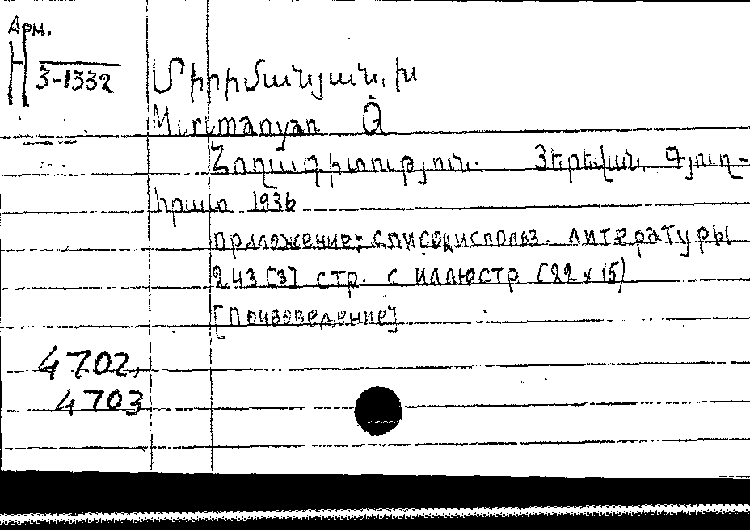 Арм.
H 3-1332
Միրիմանյան, Խ
Mirimanyan
Հողագիտություն. Յերեվան, Գյուղ-
հրատ 1936
приложение: список использ. литературы
243 [3] стр. с иллюстр (22 x 15)
[Почвоведение]
4702,
4703